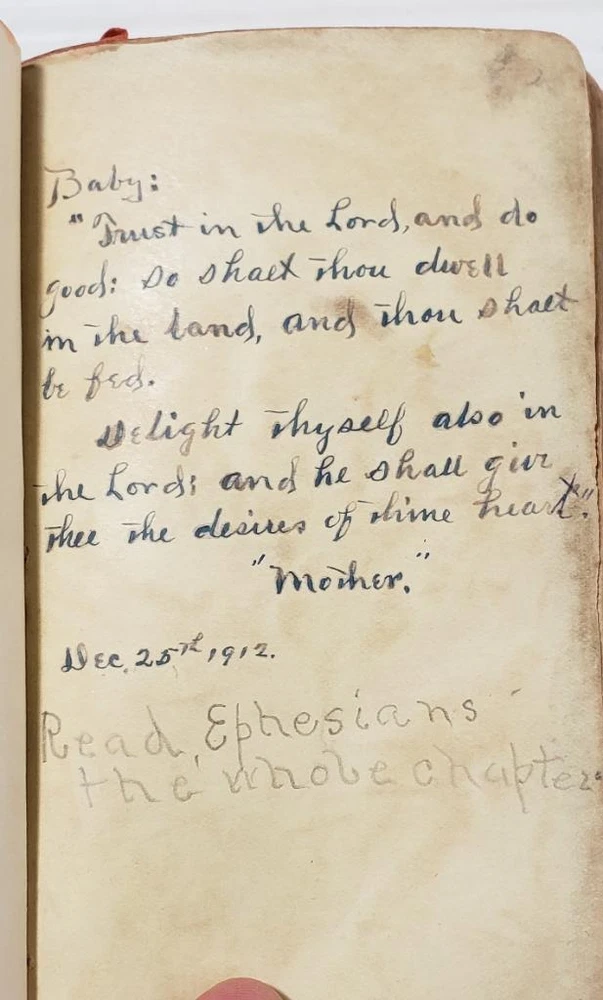 Baby:
"Trust in the Lord, and do
good: so shalt thou dwell
in the land, and thou shalt
be fed.
Delight thyself also in
the Lord; and he shall give
thee the desires of thine heart".
"Mother."
Dec. 25rd, 1912.
Read, Ephesians
the whole chapter.